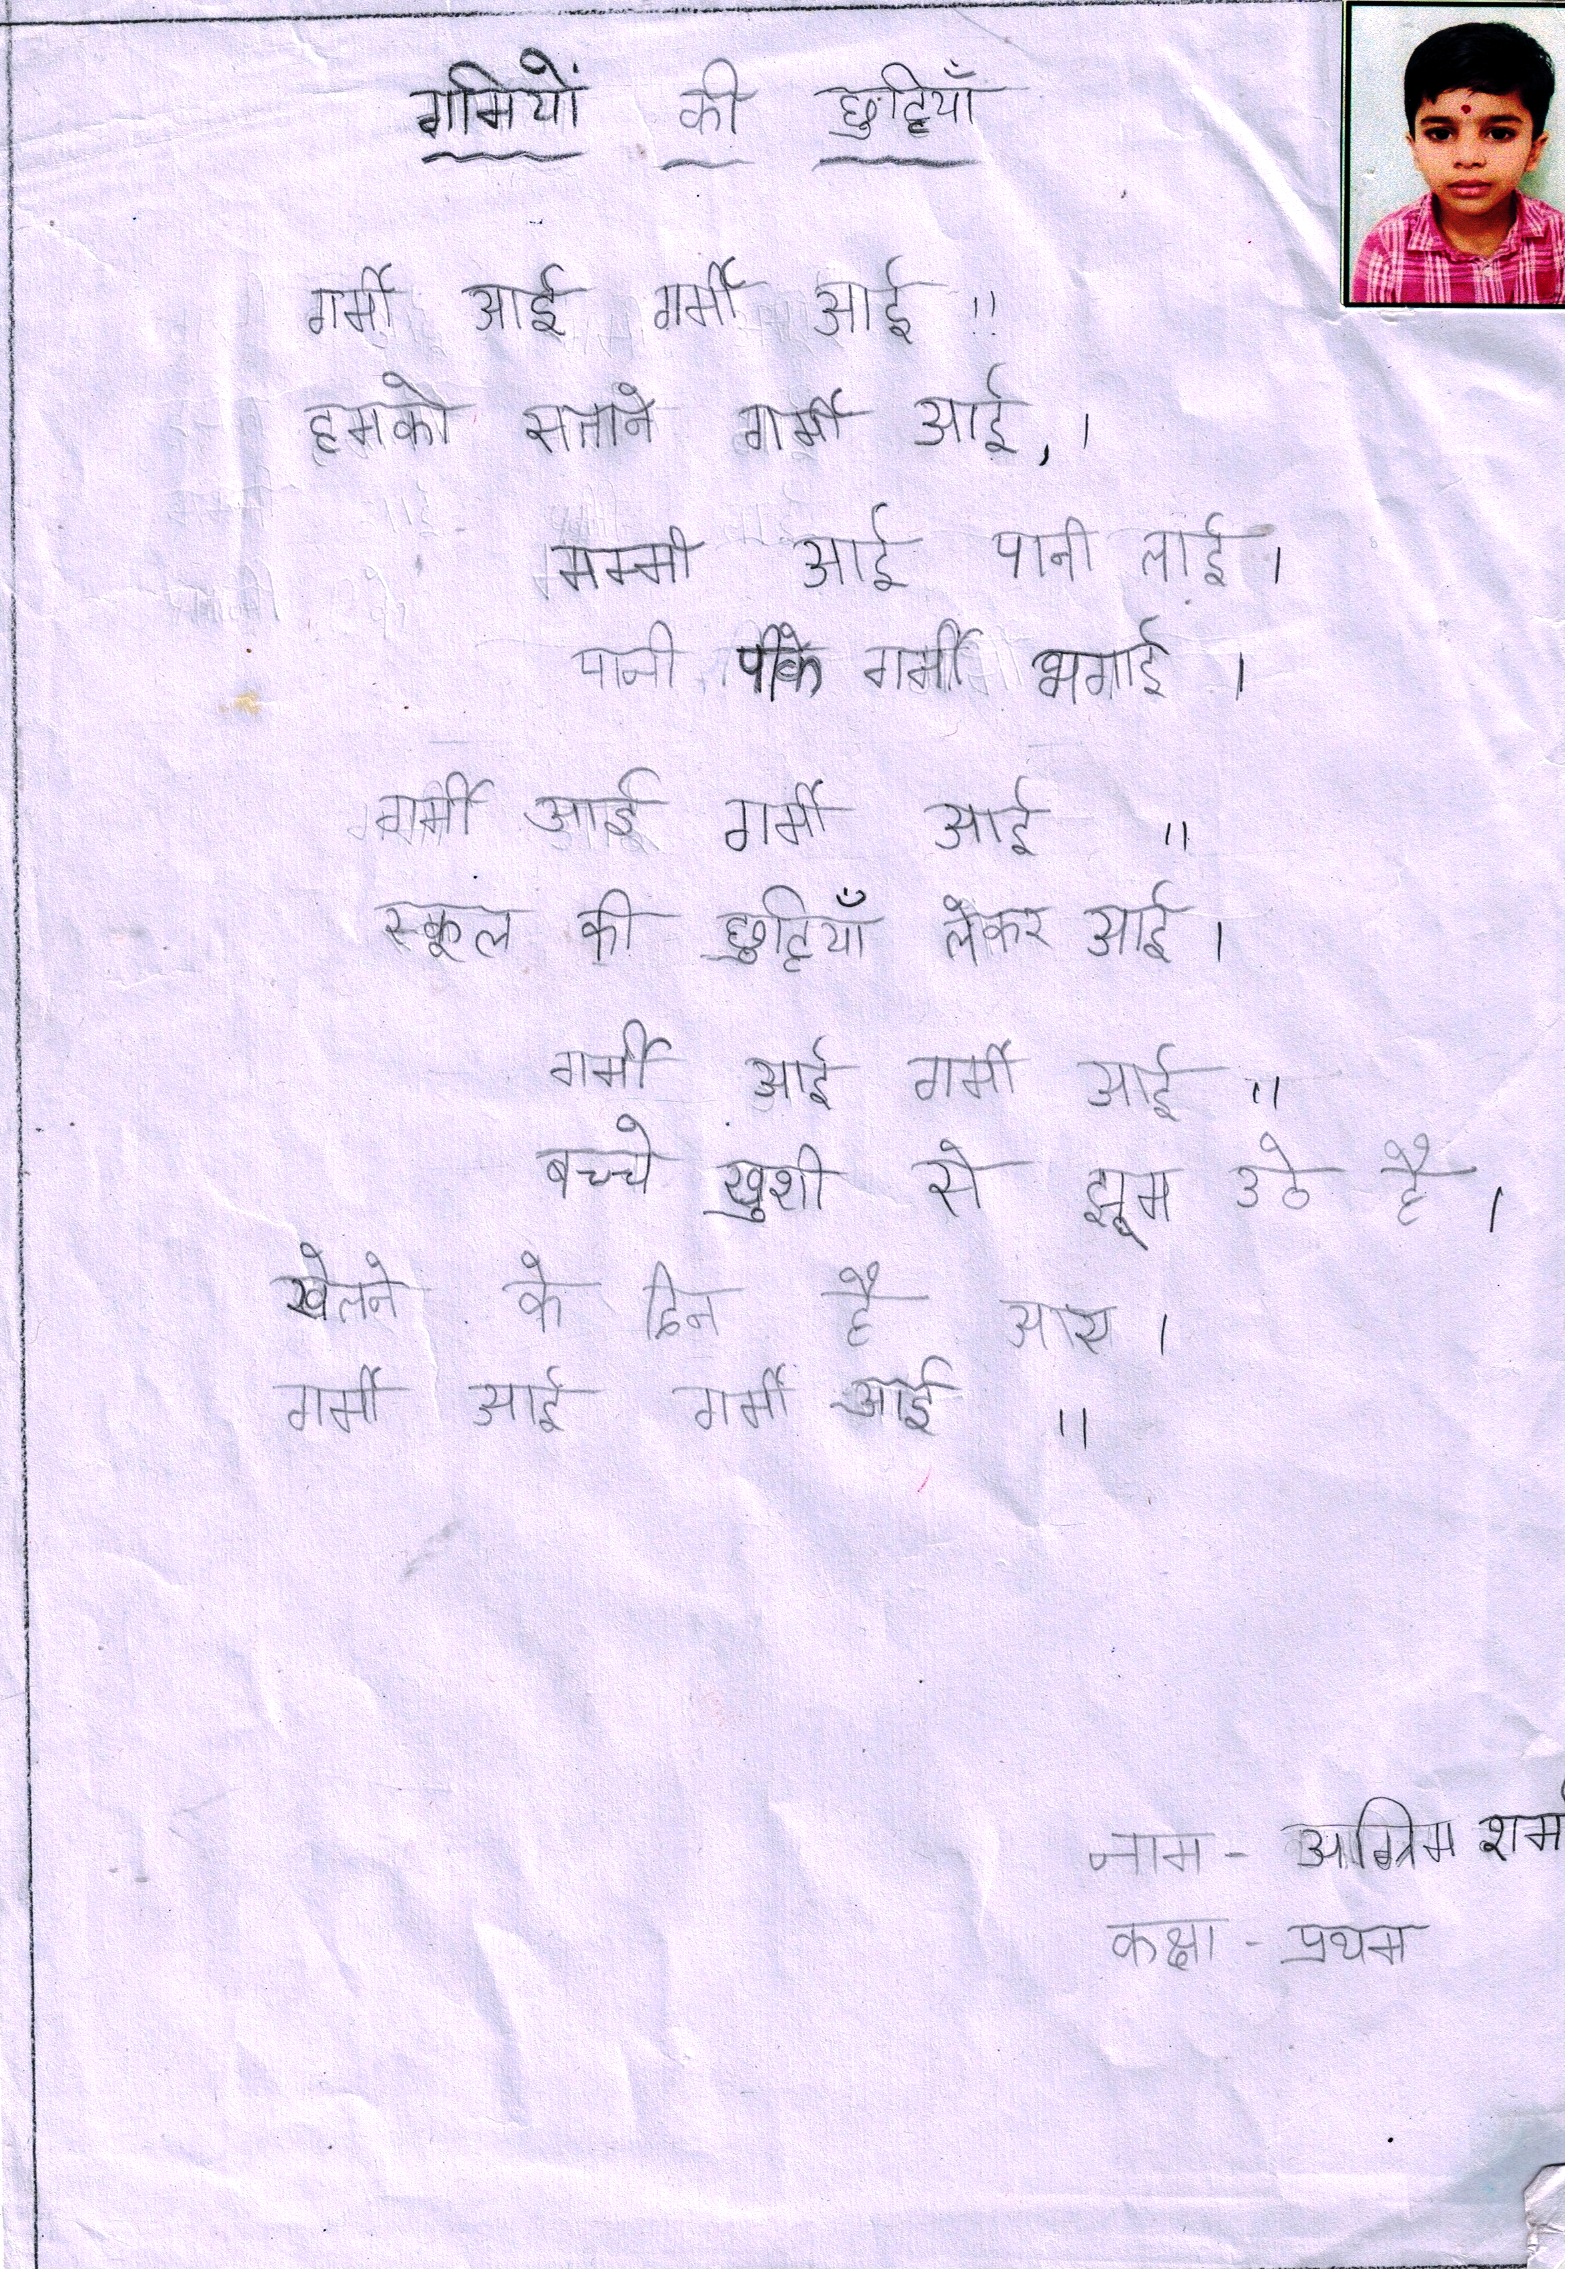 गर्मियों की छुट्टियाँ
गर्मी आई गर्मी आई ॥
हमको सताने गर्मी आई, ।
मम्मी आई पानी लाई ।
पानी पीके गर्मी भगाई ।
गर्मी आई गर्मी आई ॥
स्कूल की छुट्टियाँ लेकर आई ।
गर्मी आई गर्मी आई ॥
बच्चे खुशी से झूम उठे है ।
खेलने के दिन है आए ।
गर्मी आई गर्मी आई ॥
नाम - अग्रिम शर्मा
कक्षा - प्रथम